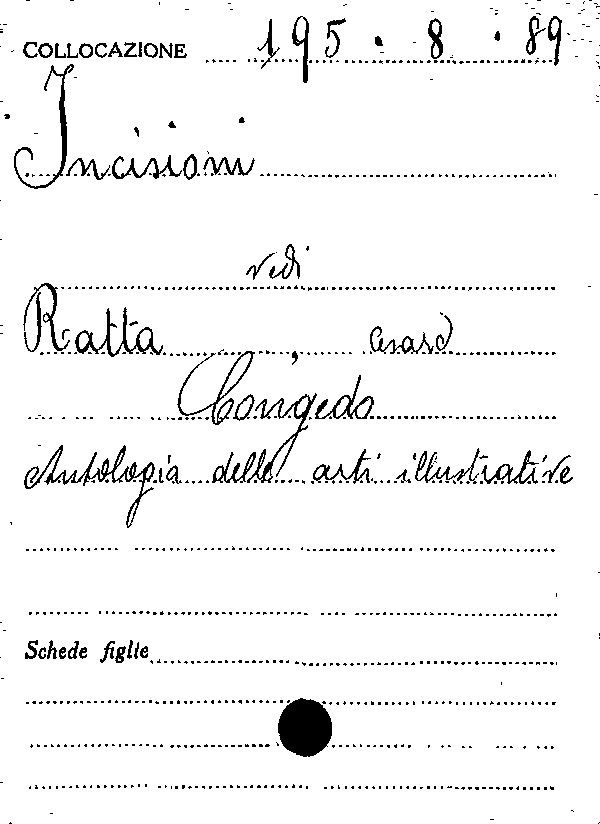 COLLOCAZIONE 195.8.89
Incisioni
vedi
Ratta, Cesare
Congedo
Antologia delle arti illustrative
Schede figlie